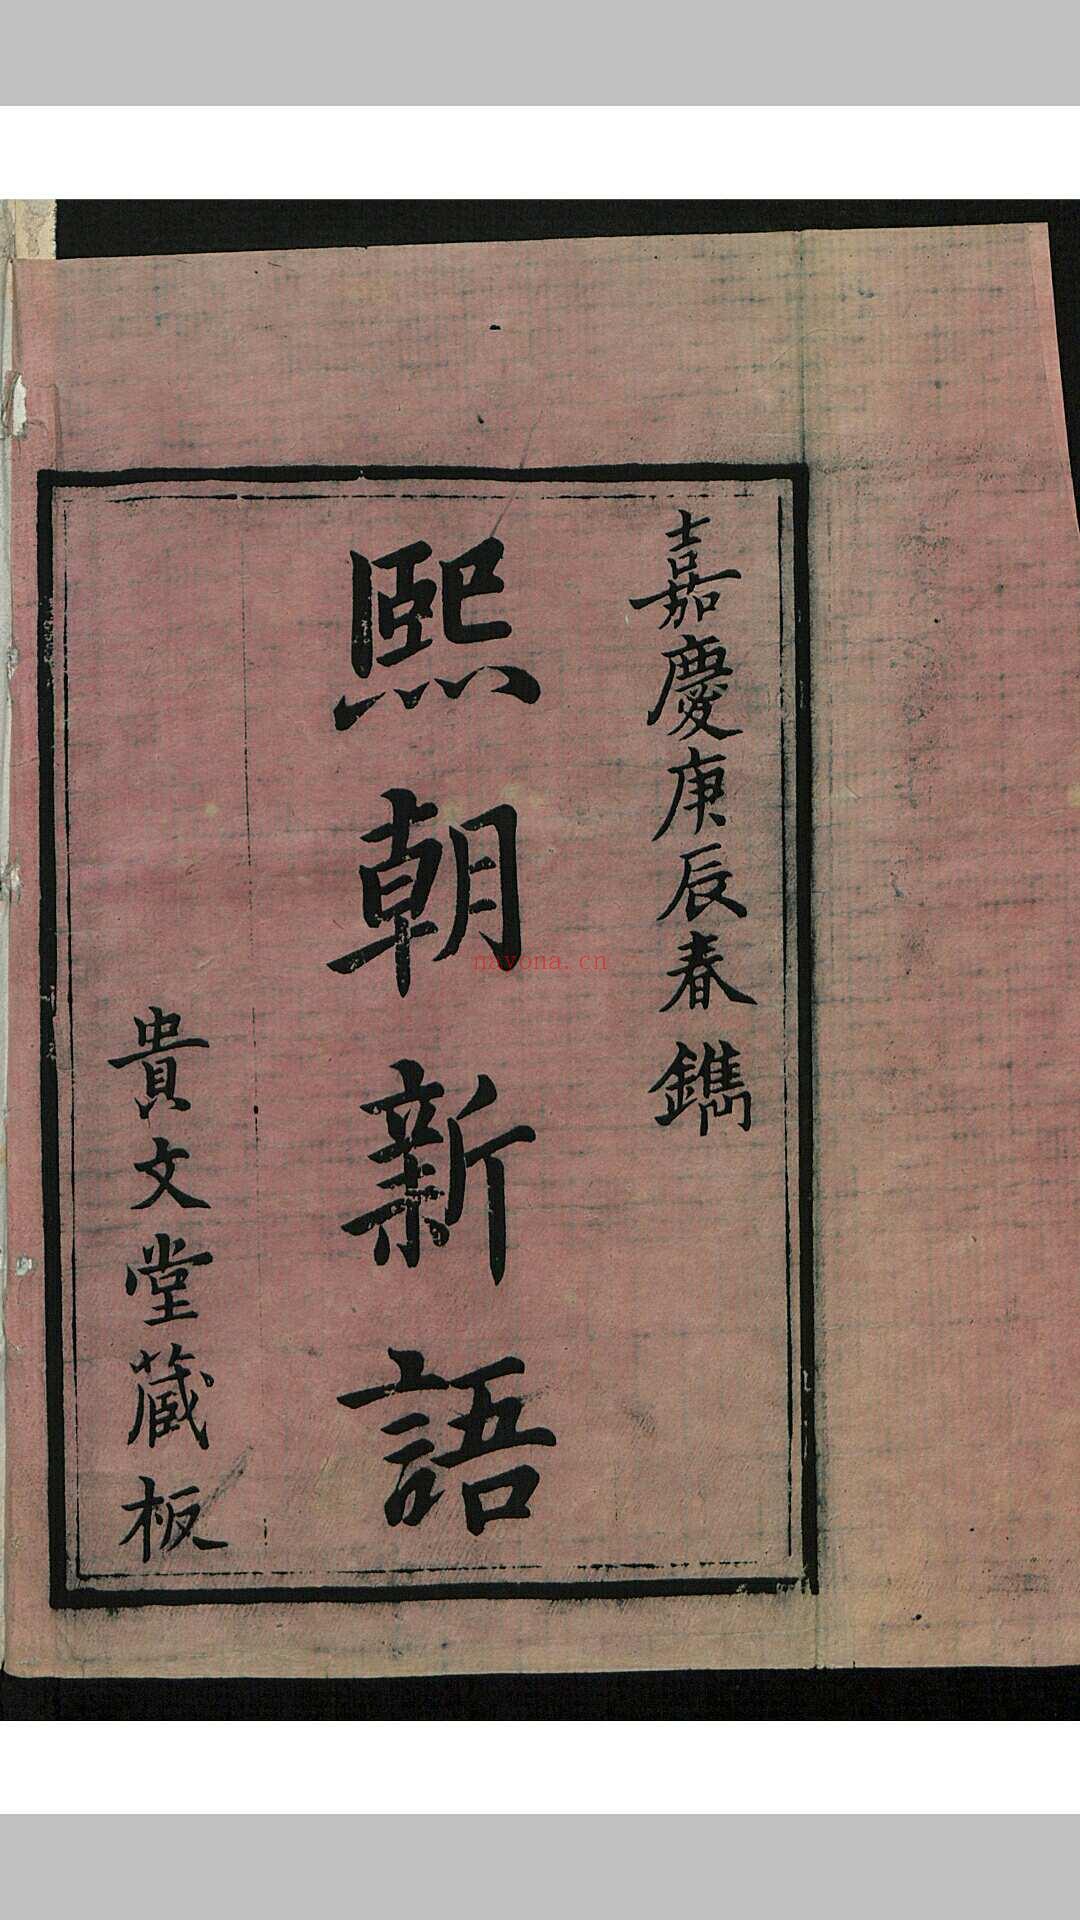 嘉慶庚辰春鐫
熙朝新語
貴文堂藏板
nayona.cn